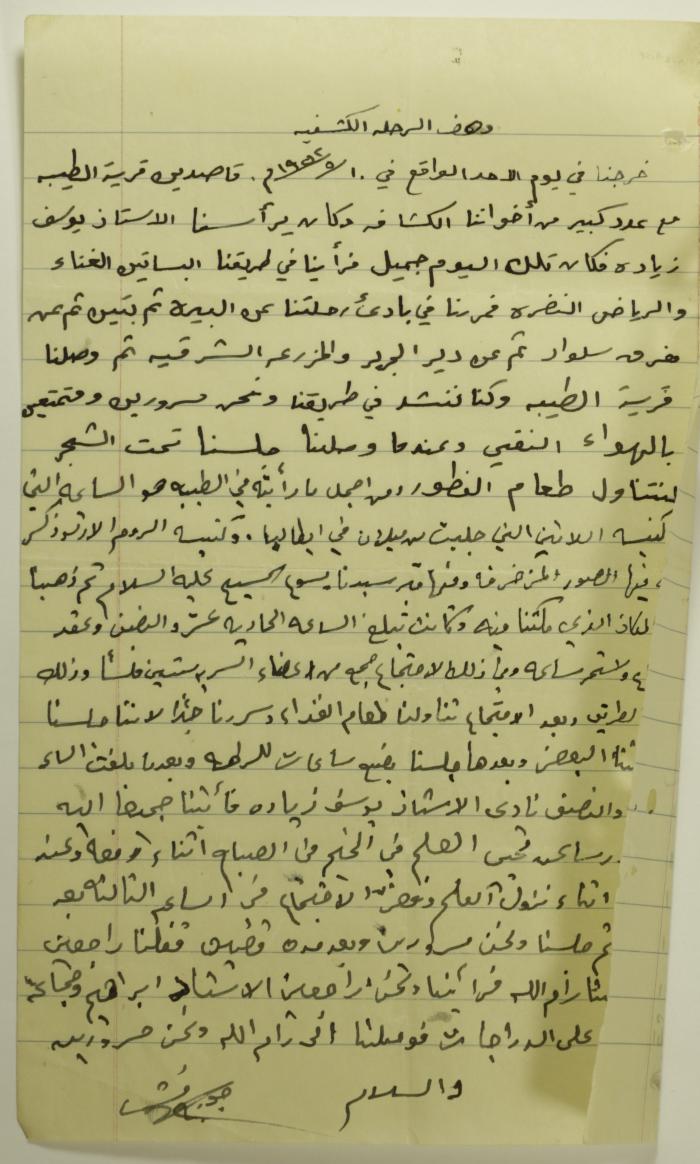 وصف الرحله الكشفيه
خرجنا في يوم الاحد الواقع في ١٠/٥/١٩٥٢م. قاصدين قرية الطيبه
مع عدد كبير من أخواننا الكشافه وكان يرأسنا الاستاذ يوسف
زياده فكان ذلك اليوم جميل فرأينا في طريقنا البساتين الغناء
والرياض النضره فمررنا في بادئ رحلتنا عن البيره ثم بتين ثم عن
مفرق سلواد ثم عن دير الجرير والمزرعه الشرقيه ثم وصلنا
قرية الطيبه وكنا ننشد في طريقنا ونحن مسرورين ومتمتعين
بالهواء النقي وعندما وصلنا جلسنا تحت الشجر
لنتناول طعام الفطور ومن اجمل ما رأيته في الطيبه هو الساعه التي
كنيسه اللاتين التي جلبت من ميلان في ايطاليا. وكنيسه الروم الارثوذكس
فيها الصور المزخرفه وفيها سيدنا يسوع المسيح عليه السلام ثم ذهبنا
المكان الذي مكثنا فيه وكانت تبلغ الساعه الحاديه عشر والنصف وعقد
ولاستمر ساعه وبعد ذلك الاجتماع جمع من اعضاء السريه ستين فلساً وذلك
لطريق وبعد الاجتماع تناولنا طعام الغذاء وسررنا جداً لاننا جلسنا
البعض وبعدها جلسنا بضع ساعات للراحه وبعدما بلغت الساعه
والنصف نادى الاستاذ يوسف زياده فأتينا جميعنا اليه
نحيي العلم في المخيم في الصباح اثناء رفعه وعند
اثناء نزول العلم الاجتماع في الساعه الثالثه
ثم جلسنا ونحن مسرورين وبعد مده قفلنا راجعين
رام الله فرأينا ونحن راجعين الاستاذ ابراهيم وجماعته
على الدراجات فوصلنا الى رام الله ونحن مسرورين
والسلام